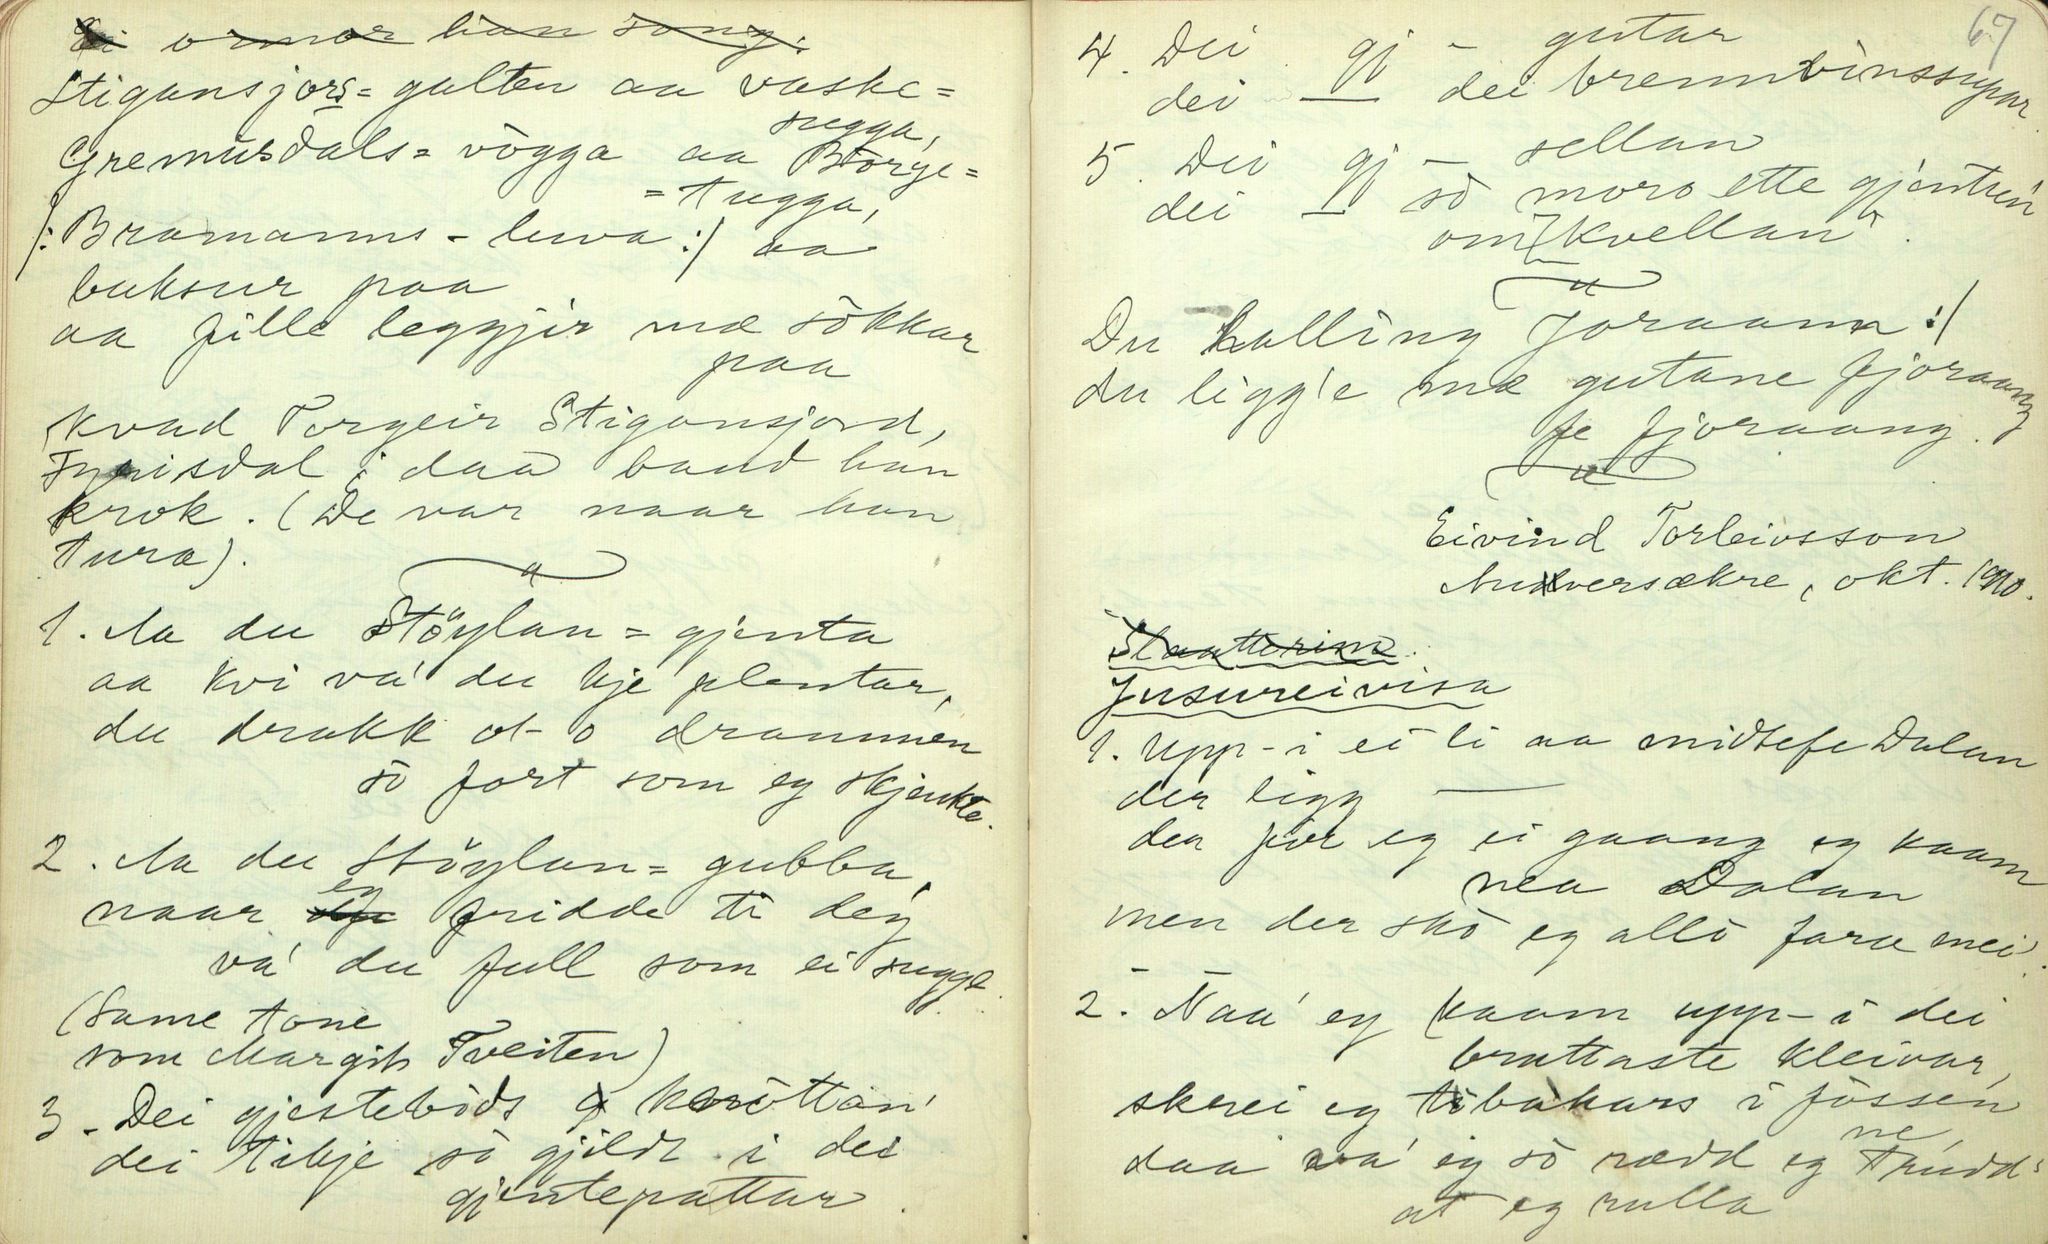 ormar han song.
Stigansjors= galten aa vaske=
sugga,
Gremusdals= vògga aa Borge=
= tugga,
/: Bramanns - luva :/ aa
buksur paa
aa fille leggjir mæ sòkkar
paa
Kvad Torgeir Stigansjord,
Fyrisdal; daa baud han
krok. (De var naar han
tura).
1. Aa du Stöylan = gjenta
aa kvi va' du kje plentar,
du drakk ot o drammen
sò fort som eg skjenkte.
2. Aa du Stöylan = gubba,
naar eg fridde ti deg
va' du full som ei sugge.
(Same tone
som Margit Tveiten)
3. Dei gjestebòds knòttan'
dei tikje sò gjildt i dei
gjentepattar.
67
4. Dei gj - gutar
dei — dei brennvinssupar.
5. Dei gj - sellan
dei — sò moro ette gjentun
om kvellan'.
Du halling Joraam :/
du ligg'e mæ gutane fjoraang
fe fjoraang.
Eivind Torleivsson
versækre, okt. 1910.
Slaatterim
Jusureivisa
1. Upp-i ei li aa midtefe Dalan
der ligg —
der fór eg ei gaang eg kaam
nea Dalan
men der skò eg allò fara mei.
2. Naa' eg kaam upp-i dei
brattaste kleivar,
skrei eg tibakars i fòssen
daa va' eg sò rædd eg ne
trudd'
at eg rulla